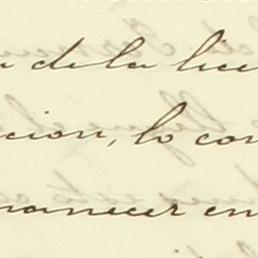 de la lice
cion, lo con
manecer en